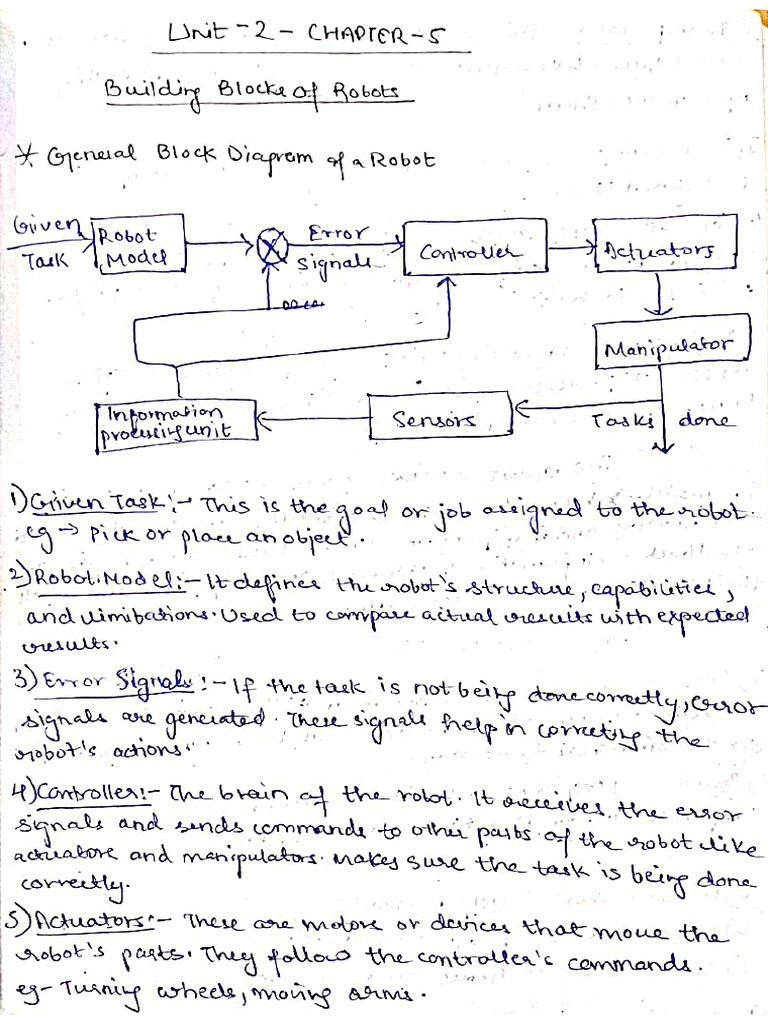 Unit-2 - CHAPTER-5
Building Blocks of Robots
* General Block Diagram of a Robot
Given Task
Robot Model
Error signals
Controller
Actuators
Manipulator
Information processing unit
Sensors
Tasks done
1) Given Task:- This is the goal or job assigned to the robot.
eg → Pick or place an object.
2) Robot Model:- It defines the robot's structure, capabilities,
and limitations. Used to compare actual results with expected
results.
3) Error Signals:- If the task is not being done correctly, error
signals are generated. These signals help in correcting the
robot's actions.
4) Controller:- The brain of the robot. It receives the error
signals and sends commands to other parts of the robot like
actuators and manipulators. Makes sure the task is being done
correctly.
5) Actuators:- These are motors or devices that move the
robot's parts. They follow the controller's commands.
eg- Turning wheels, moving arms.